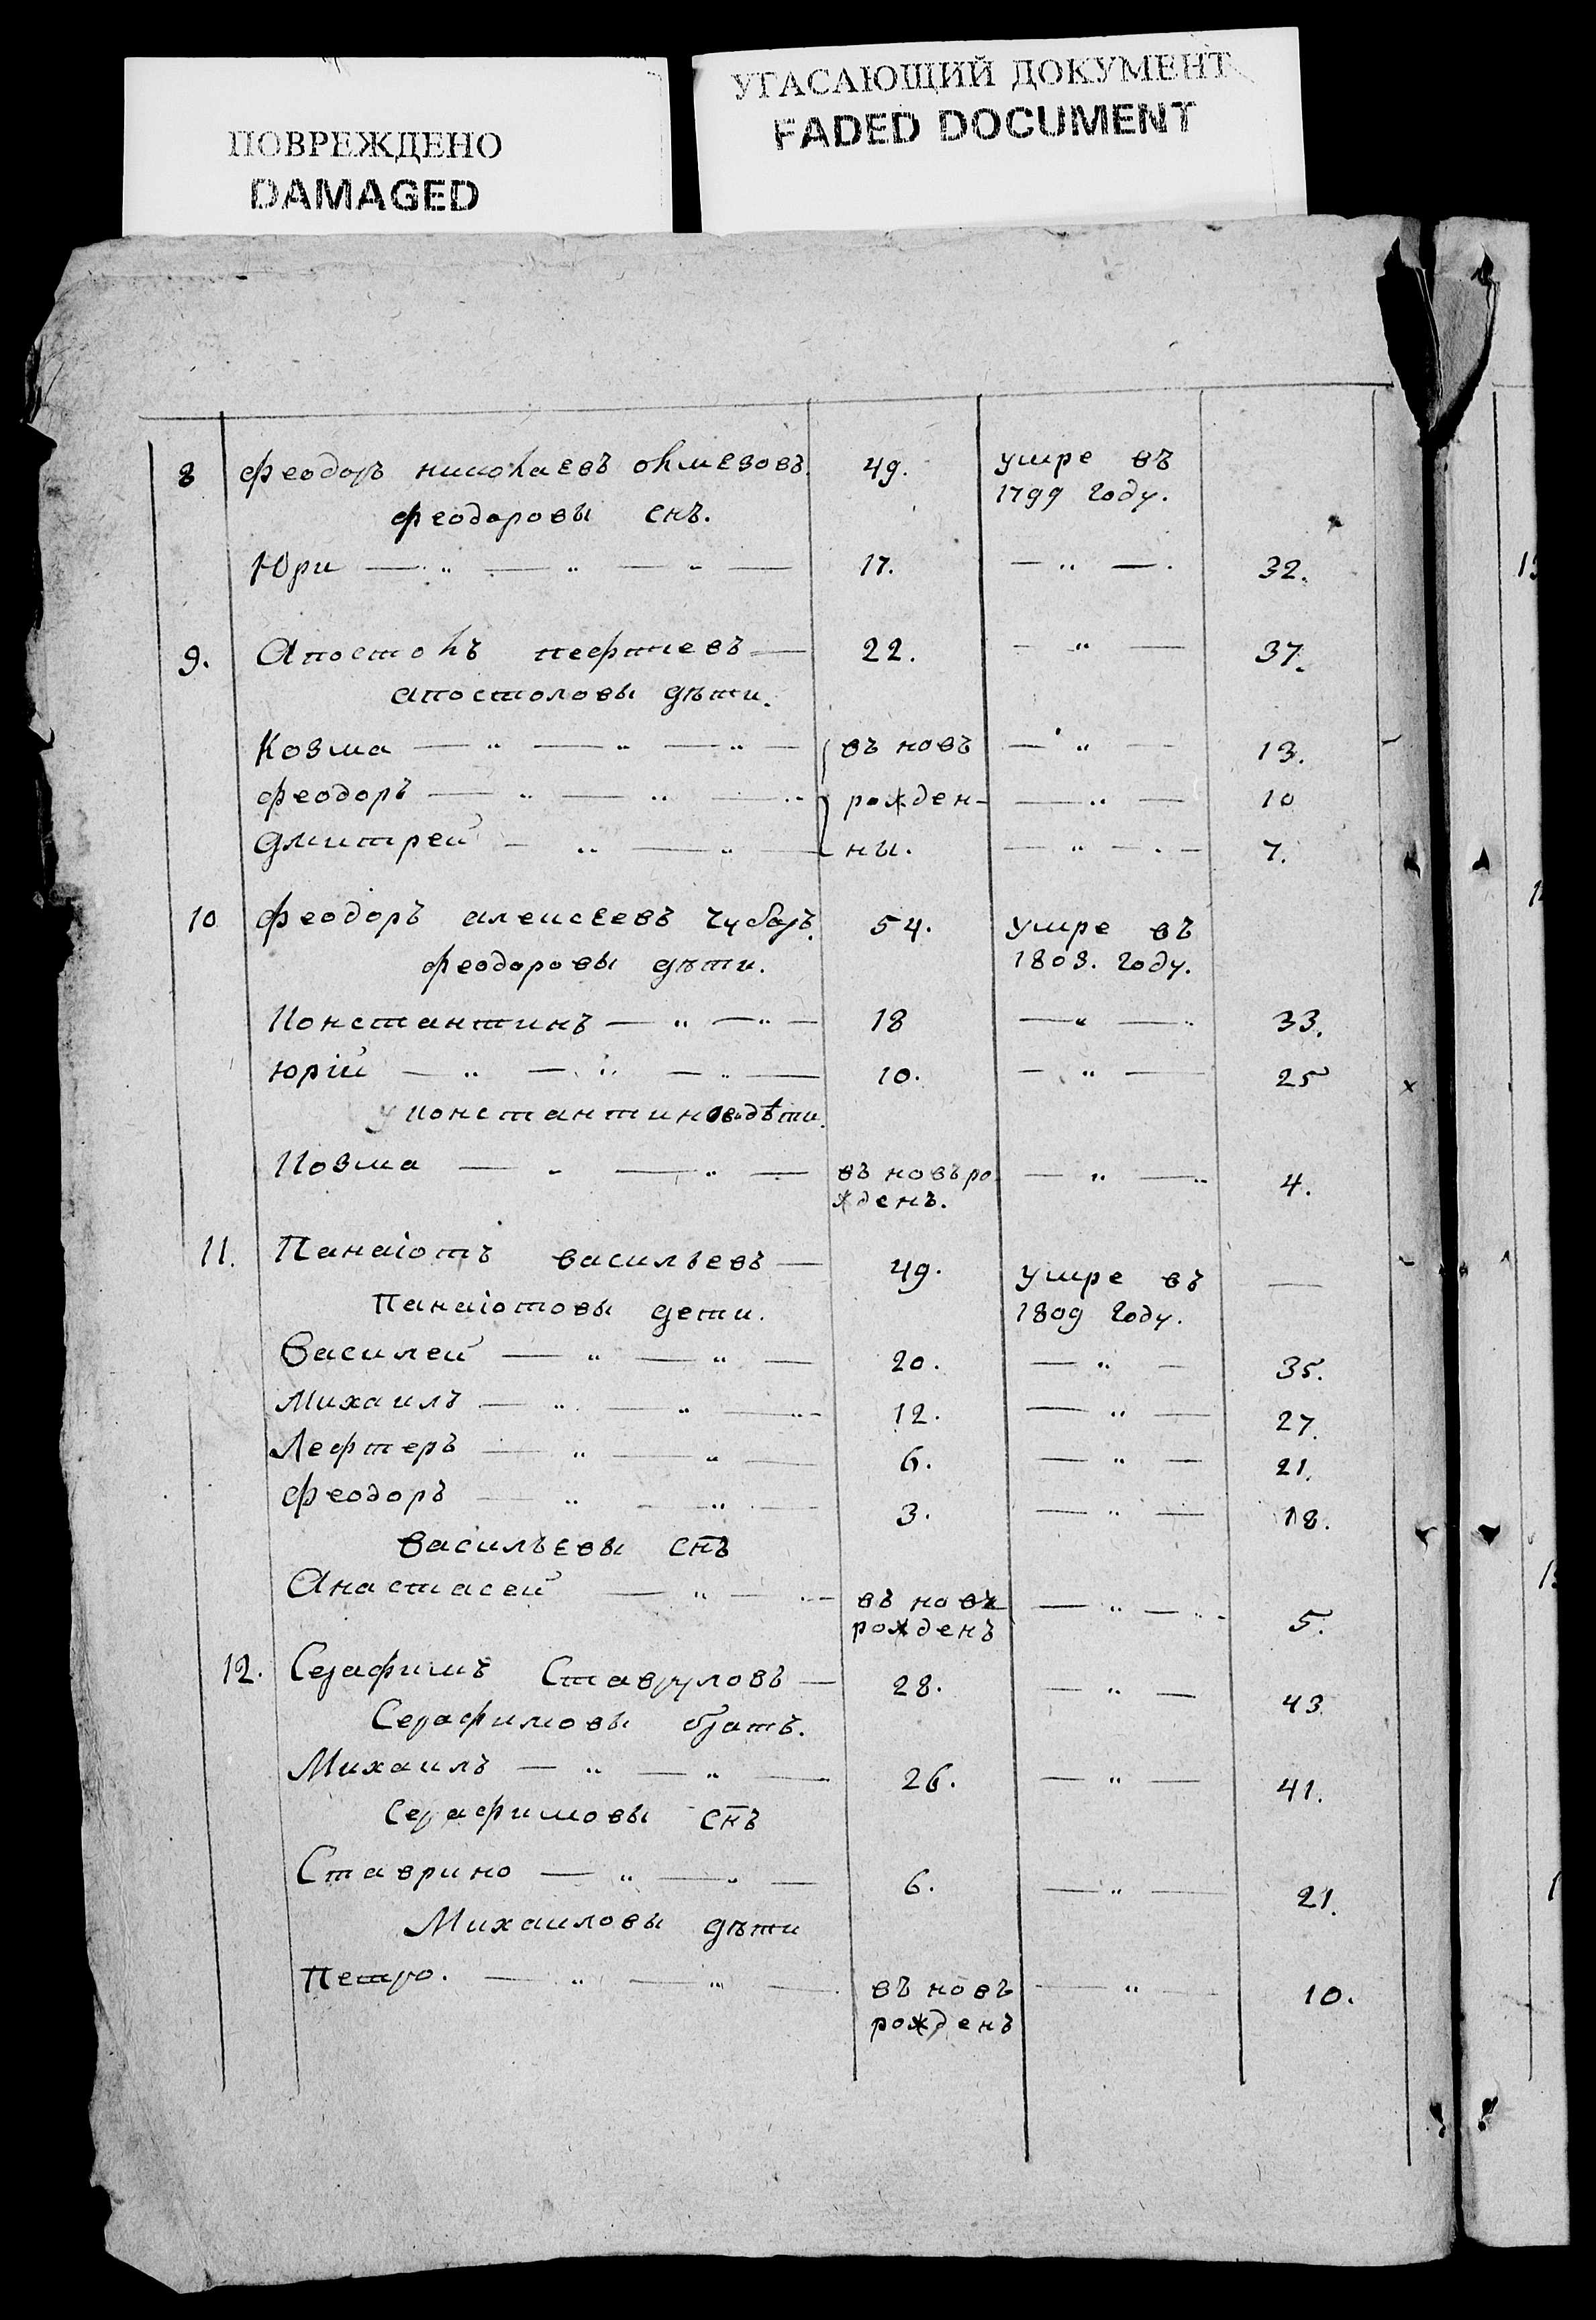 ПОВРЕЖДЕНО
DAMAGED
УГАСАЮЩИЙ ДОКУМЕНТ
FADED DOCUMENT
8 феодоръ николаевъ олмезовъ. 49. умре въ
1799 году.
феодоровы снъ.
Юри — „ — „ — „ — 17. — „ — . 32.
9. Апостолъ пефтиевъ — 22. — „ — 37.
апостоловы дѣти.
Козма — „ — „ — „ — въ новъ — „ — 13.
феодоръ — „ — „ — „ рожден- — „ — 10
Дмитрей — „ — „ — ны. — „ — . — 7.
10 феодоръ алексеевъ чубаръ. 54. умре въ
феодоровы дѣти. 1803. году.
Константинъ — „ — „ — 18 — „ — „ 33.
юрій — „ — „ — „ — 10. — „ — 25
у константинов дѣти.
Козма — „ — „ — въ новъ ро — „ — „ 4.
жденъ.
11. Панаіотъ васильевъ — 49. умре въ —
Панаіотовы дети. 1809 году.
Василей — „ — „ — 20. — „ — 35.
Михаилъ — „ — „ — „ - 12. — „ — 27.
Лефтеръ — „ — „ — 6. — „ — 21.
феодоръ — „ — „ — 3. — „ — 18.
васильевы снъ
Анастасей — „ — „ - въ новъ — „ — „ - 5.
рожденъ
12. Серафимъ Ставруловъ — 28. — „ — 43.
Серафимовы братъ.
Михаилъ — „ — „ — 26. — „ — 41.
Серафимовы снъ
Ставрино — „ — „ — 6. — „ — 21.
Михаиловы дѣти
Петро. — „ — „ — въ новъ — „ — 10.
рожденъ